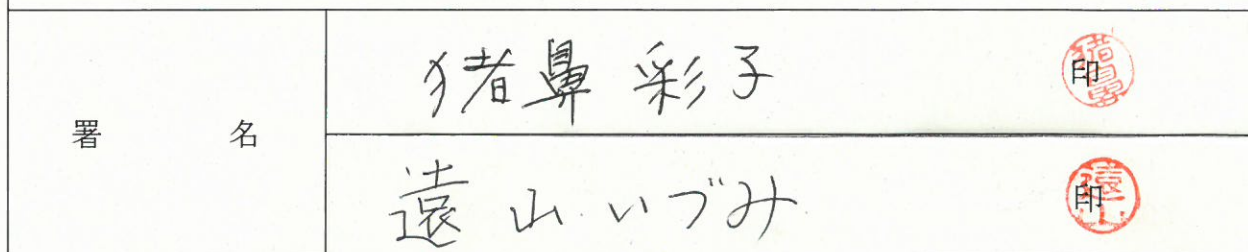 署名
猪鼻 彩子 印
猪鼻
遠山 いづみ 印
遠山